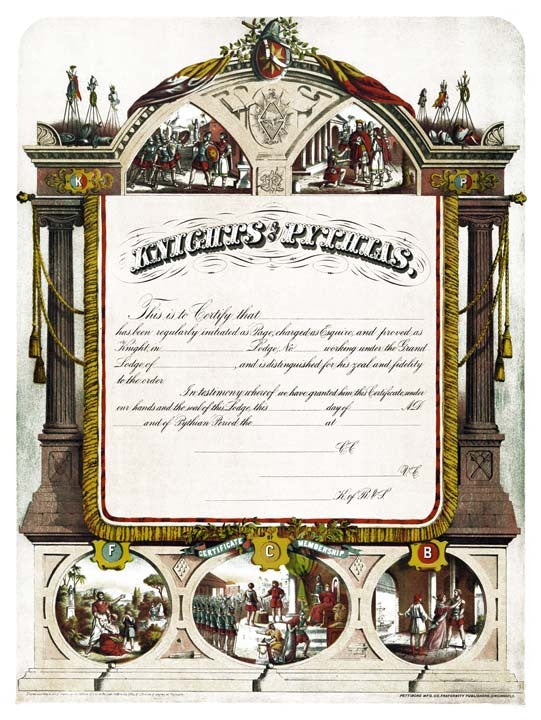 K
P
KNIGHTS of PYTHIAS,
This is to Certify that
has been regularly initiated as Page, charged as Esquire, and proved, as
Knight, in Lodge, No. working under the Grand
Lodge of , and is distinguished for his zeal and fidelity
to the order.
In testimony whereof we have granted him this Certificate, under
our hands and the seal of this Lodge, this day of A.D.
and of Pythian Period, the at
C.C.
V.C.
K. of R. & S.
F
CERTIFICATE
C
MEMBERSHIP
B
PETTIBONE MF'G. CO. FRATERNITY PUBLISHERS, CINCINNATI, O.